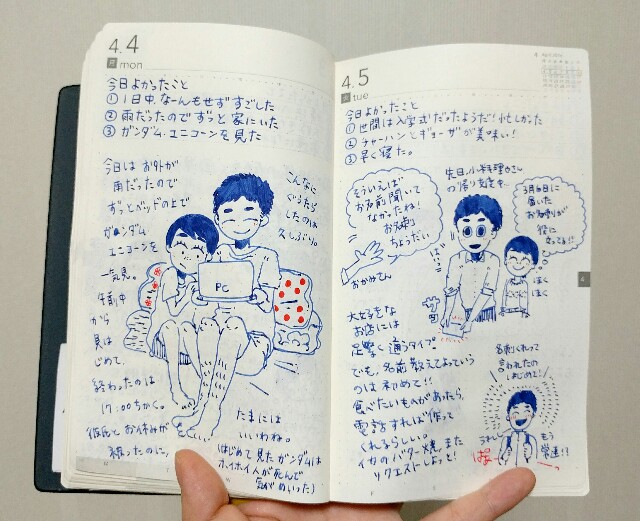 4.4
月 mon
今日よかったこと
① 1日中なーんもせずすごした
② 雨だったのでずっと家にいた
③ ガンダム.ユニコーンを見た
今日はお外が
雨だったので
ずっとベッドの上で
ガンダム
ユニコーンを
一気見。
午前中
から
見は
じめて、
終わったのは
17:00ちかく。
彼氏とお休みが
被ったのに。
こんなに
ぐうたら
したのは
久しぶり。
PC
たまには
いいわね。
(はじめて見たガンダムは
ホイホイ人が死んで
気がめいった)
4.5
火 tue
今日よかったこと
① 世間は入学式だったようだ!忙しかった
② チャーハンとギョーザが美味い!
③ 早く寝た。
先日、小料理屋さん
の帰り支度中…
そういえば
お名前聞いて
なかったね!
お名刺
ちょうだい
おかみさん
3月6日に
届いた
お名刺が
役に
立ってる!!
ほく
ほく
大好きな
お店には
足繁く通うタイプ
でも、名前教えてっていう
のは初めて!!
食べたいものがあったら、
電話すれば作って
くれるらしい。
イカのバター焼、また
リクエストしよっと!
名刺くれって
言われたの
はじめて!
うれしー
もう
常連!!
4